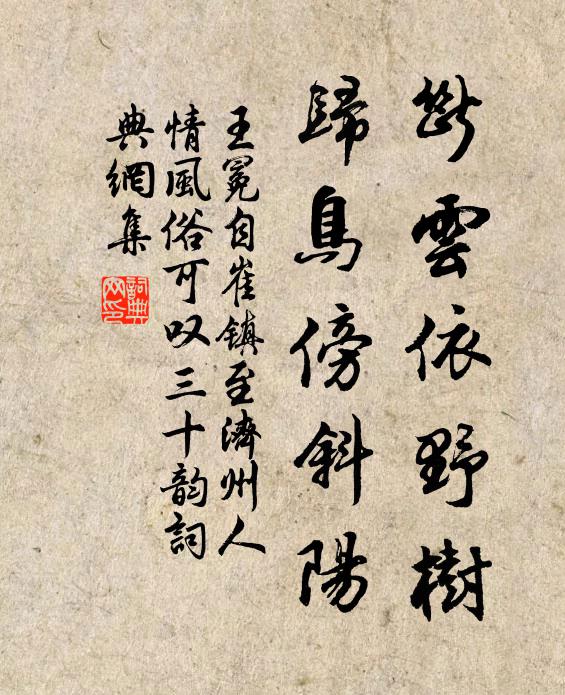 斷雲依野樹
歸鳥傍斜陽
王冕自崔鎮至濟州人
情風俗可叹三十韵詞
典網集
詞典
网印